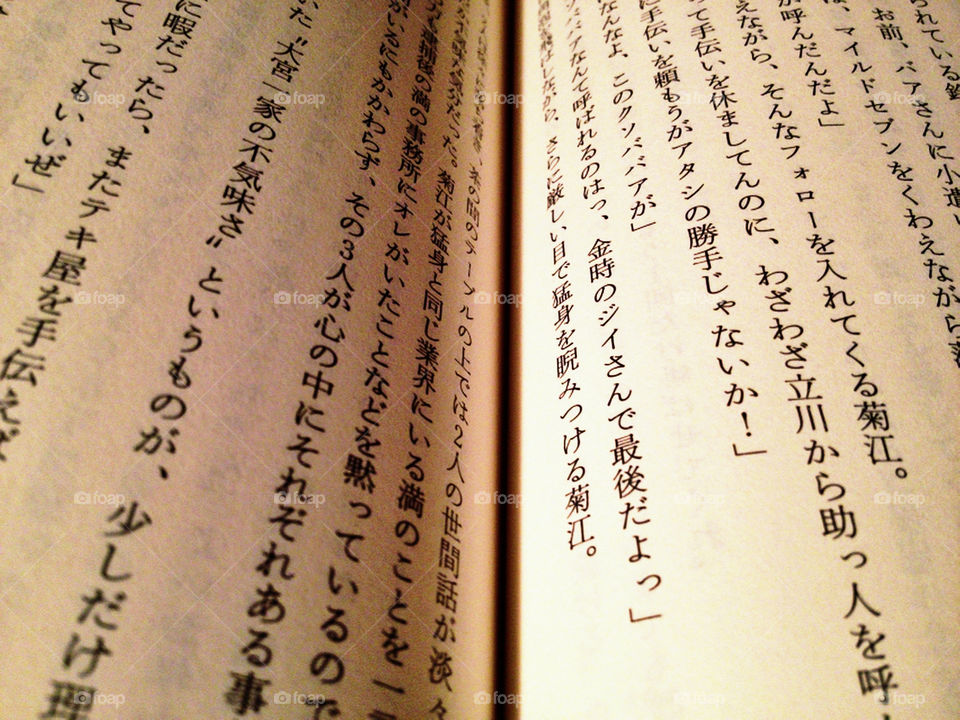 られている
お前、バアさんに小遣い
、マイルドセブンをくわえながら
が呼んだんだよ」
えながら、そんなフォローを入れてくる菊江。
って手伝いを休ましてんのに、わざわざ立川から助っ人を呼
に手伝いを頼もうがアタシの勝手じゃないか!」
なんなよ、このクソババアが」
ソババアなんて呼ばれるのはっ、金時のジイさんで最後だよっ」
ながら、さらに厳しい目で猛身を睨みつける菊江。
の間のテーブルの上では2人の世間話が淡々
だった。菊江が猛身と同じ業界にいる満のことを一
の満の事務所にオレがいたことなどを黙っているので
がいるにもかかわらず、その3人が心の中にそれぞれある事
いた〝大宮一家の不気味さ〟というものが、少しだけ理
に暇だったら、またテキ屋を手伝えば
てやってもいいぜ」
foap